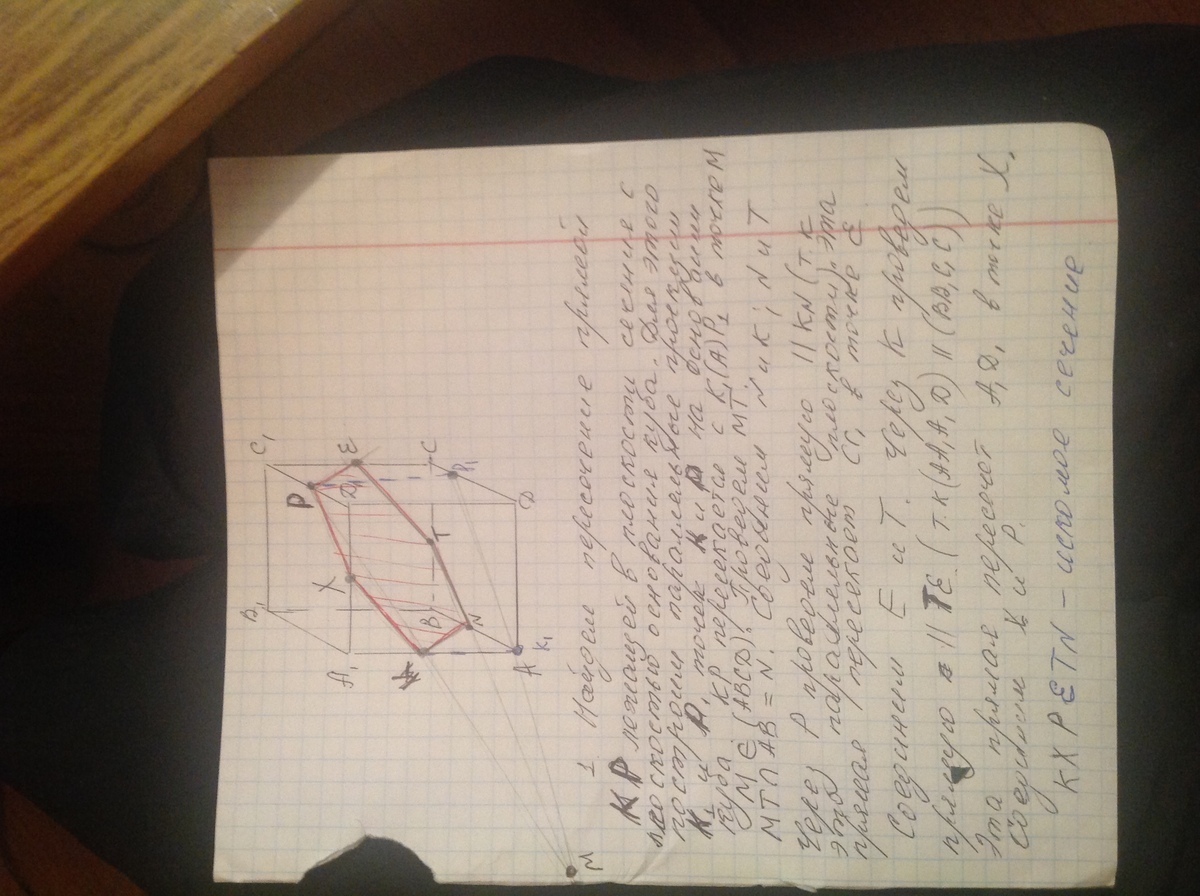 B₁
C₁
P
D₁
E
X
A₁
K
B
C
P₁
T
N
A
K₁
D
M
1 Найдем пересечение прямой
KP лежащей в плоскости сечение с
плоскостью основания куба. Для этого
построим параллельные проекции
K₁ и P₁ точек K и P на основании
куба. KP пересекается с K₁(A)P₁ в точке M
M ∈ (ABCD). Проведем MT.
MT ∩ AB = N. Соединим N и K; N и T
Через P проведем прямую || KN (т.к
это параллельные плоскости). Эта
прямая пересекает CC₁ в точке E
Соединим E и T. Через K проведем
прямую || TE (т.к (AA₁A₁D) || (BB₁C₁C))
Эта прямая пересечет A₁D₁ в точке X₁
Соединим X и P.
KXPETN – искомое сечение